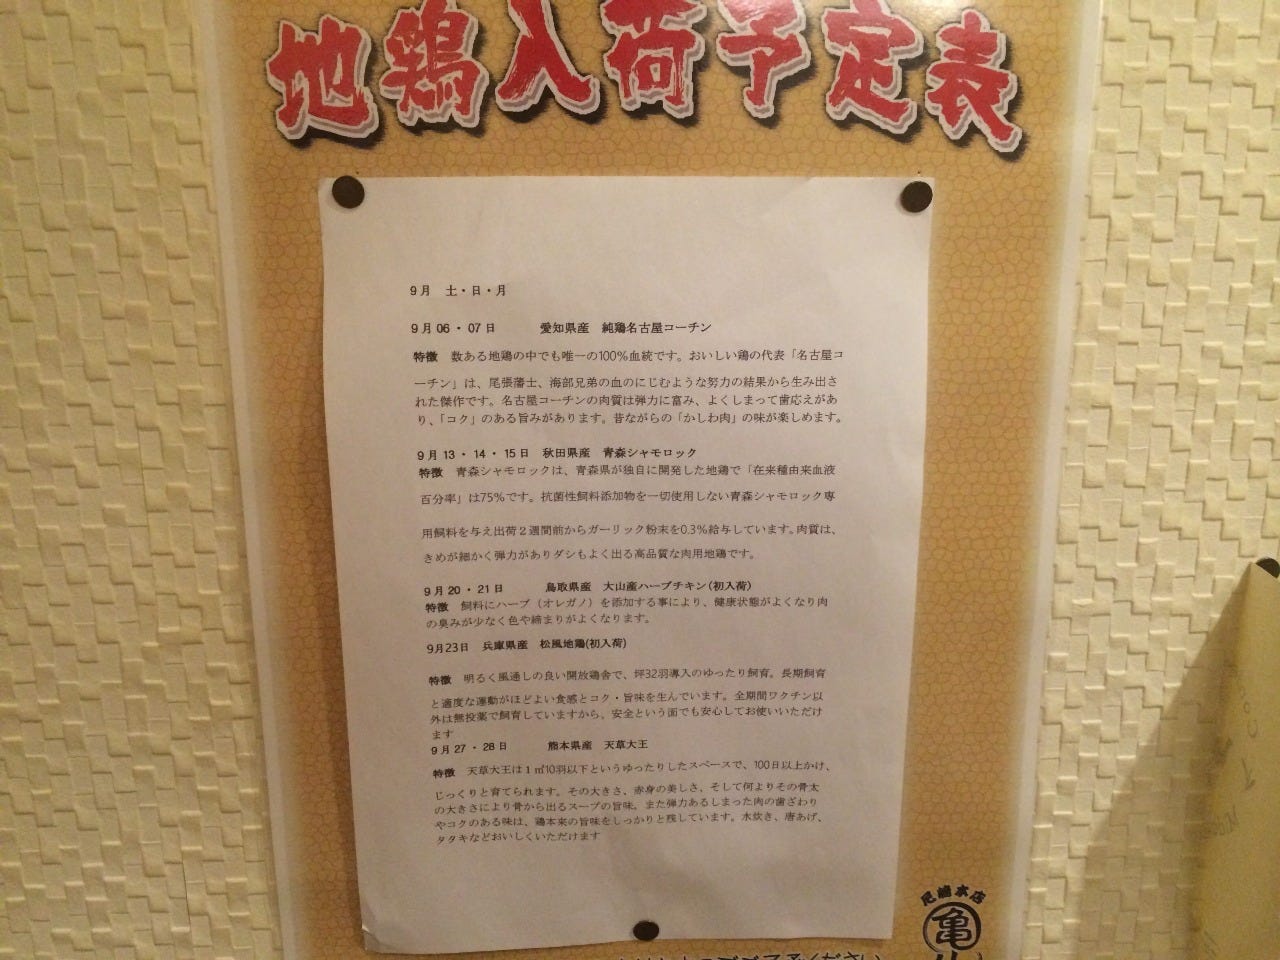 地鶏入荷予定表
9月 土・日・月
9月06・07日 愛知県産 純鶏名古屋コーチン
特徴 数ある地鶏の中でも唯一の100%血統です。おいしい鶏の代表「名古屋コ
ーチン」は、尾張藩士、海部兄弟の血のにじむような努力の結果から生み出さ
れた傑作です。名古屋コーチンの肉質は弾力に富み、よくしまって歯応えがあ
り、「コク」のある旨みがあります。昔ながらの「かしわ肉」の味が楽しめます。
9月13・14・15日 秋田県産 青森シャモロック
特徴 青森シャモロックは、青森県が独自に開発した地鶏で「在来種由来血液
百分率」は75%です。抗菌性飼料添加物を一切使用しない青森シャモロック専
用飼料を与え出荷2週間前からガーリック粉末を0.3%給与しています。肉質は、
きめが細かく弾力がありダシもよく出る高品質な肉用地鶏です。
9月20・21日 鳥取県産 大山産ハーブチキン(初入荷)
特徴 飼料にハーブ（オレガノ）を添加する事により、健康状態がよくなり肉
の臭みが少なく色や締まりがよくなります。
9月23日 兵庫県産 松風地鶏(初入荷)
特徴 明るく風通しの良い開放鶏舎で、坪32羽導入のゆったり飼育。長期飼育
と適度な運動がほどよい食感とコク・旨味を生んでいます。全期間ワクチン以
外は無投薬で飼育していますから、安全という面でも安心してお使いいただけ
ます
9月27・28日 熊本県産 天草大王
特徴 天草大王は1㎡10羽以下というゆったりしたスペースで、100日以上かけ、
じっくりと育てられます。その大きさ、赤身の美しさ、そして何よりその骨太
の大きさにより骨から出るスープの旨味。また弾力あるしまった肉の歯ざわり
やコクのある味は、鶏本来の旨味をしっかりと残しています。水炊き、唐あげ、
タタキなどおいしくいただけます
尼崎本店
亀